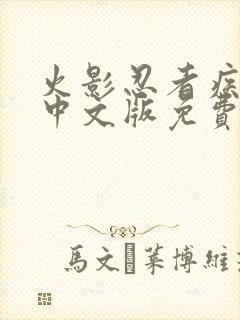 火影忍者疾
中文版免費
馬文·萊博維